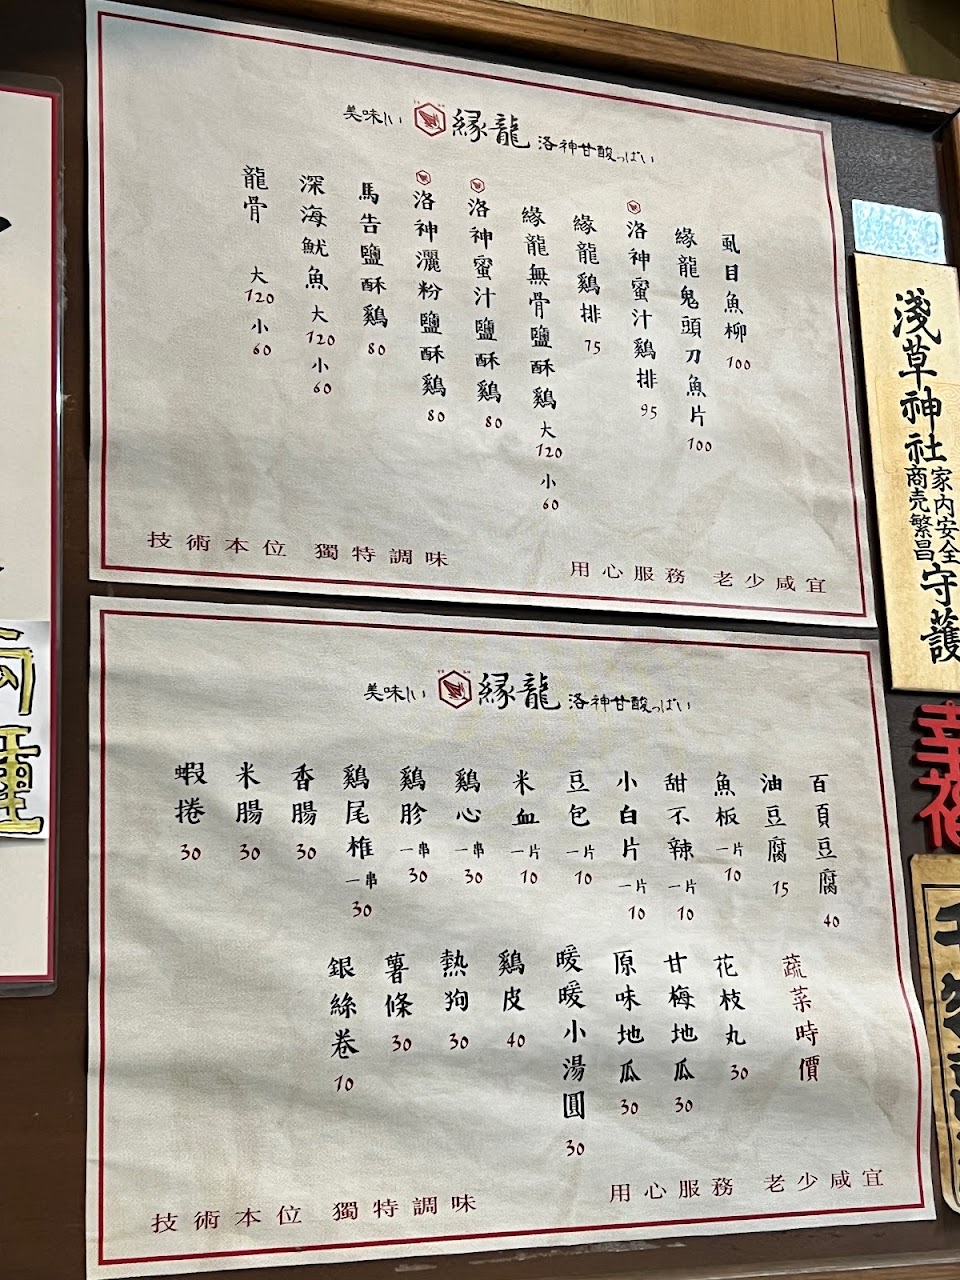 美味しい 縁龍 洛神甘酸っぱい
虱目魚柳 100
緣龍鬼頭刀魚片 100
洛神蜜汁雞排 95
緣龍雞排 75
緣龍無骨鹽酥雞 大 120 小 60
洛神蜜汁鹽酥雞 80
洛神灑粉鹽酥雞 80
馬告鹽酥雞 80
深海魷魚 大 120 小 60
龍骨 大 120 小 60
技術本位 獨特調味 用心服務 老少咸宜
美味しい 縁龍 洛神甘酸っぱい
百頁豆腐 40
油豆腐 15
魚板 一片 10
甜不辣 一片 10
小白片 一片 10
豆包 一片 10
米血 一片 10
雞心 一串 30
雞胗 一串 30
雞尾椎 一串 30
香腸 30
米腸 30
蝦捲 30
蔬菜時價
花枝丸 30
甘梅地瓜 30
原味地瓜 30
暖暖小湯圓 30
雞皮 40
熱狗 30
薯條 30
銀絲卷 10
技術本位 獨特調味 用心服務 老少咸宜
淺草神社
家内安全
商売繁昌
守護
幸福
種